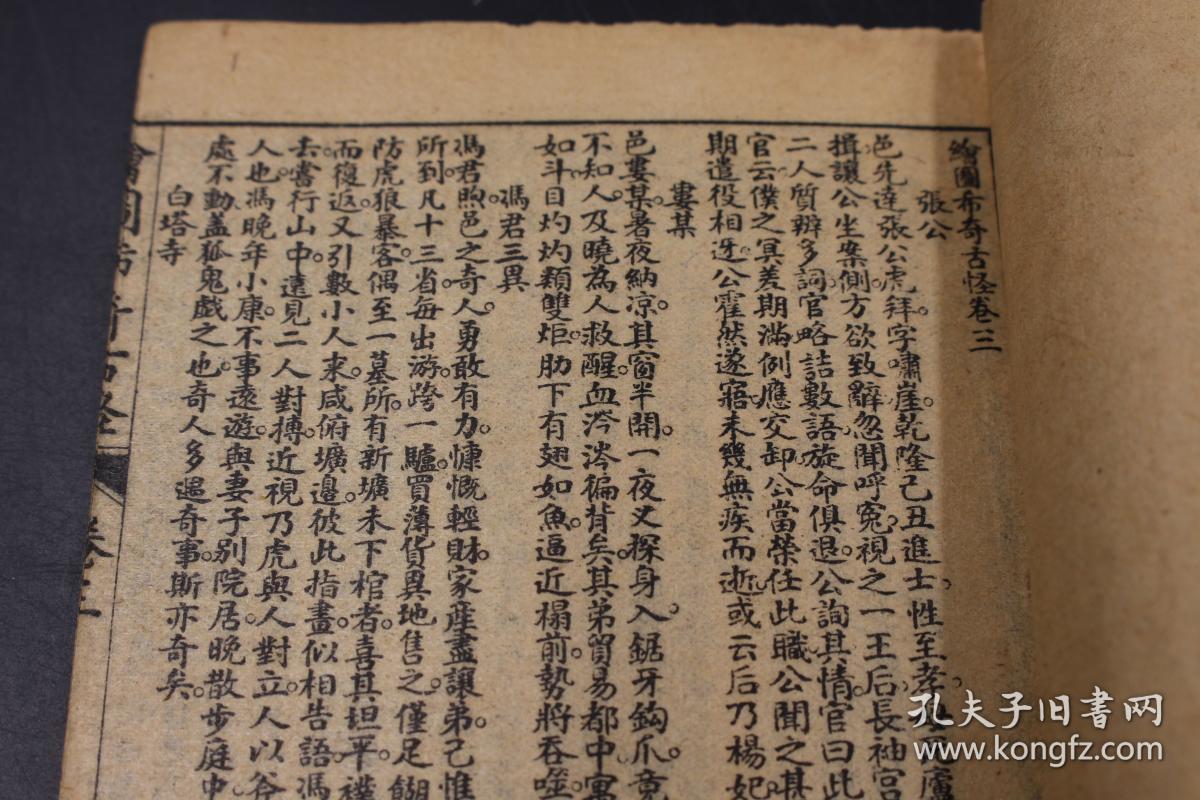 繪圖布奇古怪卷三
張公
邑先達張公虎拜字嘯崖乾隆己丑進士性至孝
揖讓公坐案側方欲致辭忽聞呼寃視之一王后長袖宮
二人質辨多詞官略詰數語旋命俱退公詢其情官曰此
官云僕之冥差期滿例應交卸公當榮任此職公聞之甚
期遣役相迓公霍然遂寤未幾無疾而逝或云后乃楊妃
婁某
邑婁某暑夜納凉其窗半開一夜叉探身入鋸牙鈎爪竟
不知人及曉為人救醒血涔涔徧背矣其弟貿易都中寓
如斗目灼灼類雙炬肋下有翅如魚逼近榻前勢將吞噬
馮君三異
馮君煦邑之奇人勇敢有力慷慨輕財家産盡讓弟己惟
所到凡十三省每出游跨一驢買薄貨異地售之僅足餬
防虎狼暴客偶至一墓所有新壙未下棺者喜其坦平襆
而復返又引數小人來咸俯壙邊彼此指畫似相告語馮
去嘗行山中遠見二人對搏近視乃虎與人對立人以斧
人也馮晚年小康不事遠遊與妻子别院居晚散步庭中
處不動蓋狐鬼戲之也奇人多遇奇事斯亦奇矣
白塔寺
卷三
孔夫子旧书网
www.kongfz.com